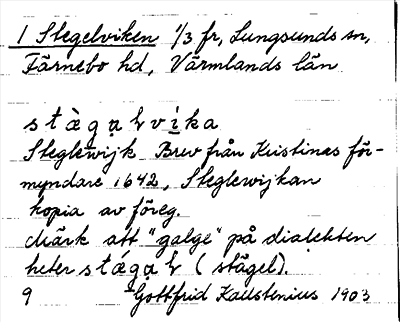 1 Stegelviken 1/3 fr, Lungsunds sn,
Färnebo hd, Värmlands län
stàgạɫvíka
Steglewijk Brev från Kristinas för-
myndare 1642, Steglewijkan
kopia av föreg.
Märk att "galge" på dialekten
heter stǽgạɫ (stägel).
9 Gottfrid Kallstenius 1903